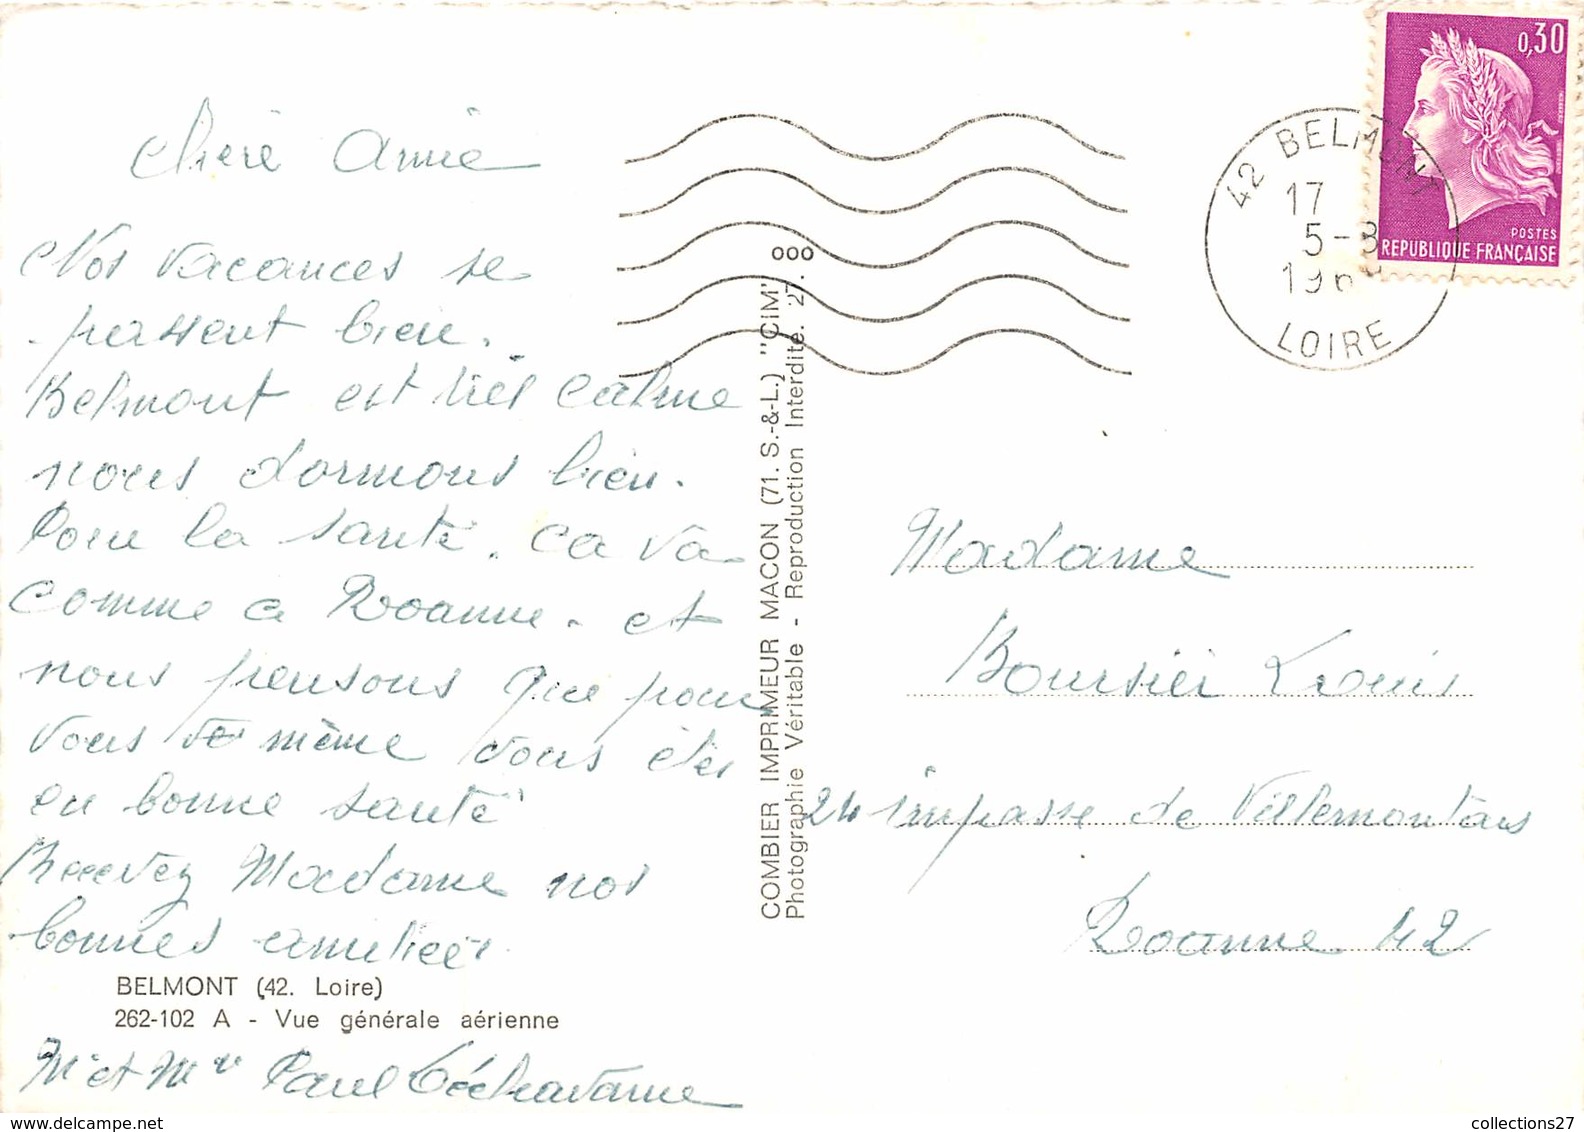 chère amie
Nos vacances se
passent bien.
Belmont est très calme
nous dormons bien.
Pour la santé. ca va
comme a Roanne. et
nous pensons que pour
vous même vous êtes
en bonne santé
Recevez Madame nos
bonnes amitiées.
BELMONT (42. Loire)
262-102 A - Vue générale aérienne
Mr et Mme Paul
COMBIER IMPRIMEUR MACON (71. S.-&-L.) "CIM"
Photographie Véritable - Reproduction Interdite. 27.
000
42 BELMONT
17
5-8
196
LOIRE
0,30
POSTES
REPUBLIQUE FRANÇAISE
Madame
Boursier Louis
24 impasse de Villemontais
Roanne 42
collections27